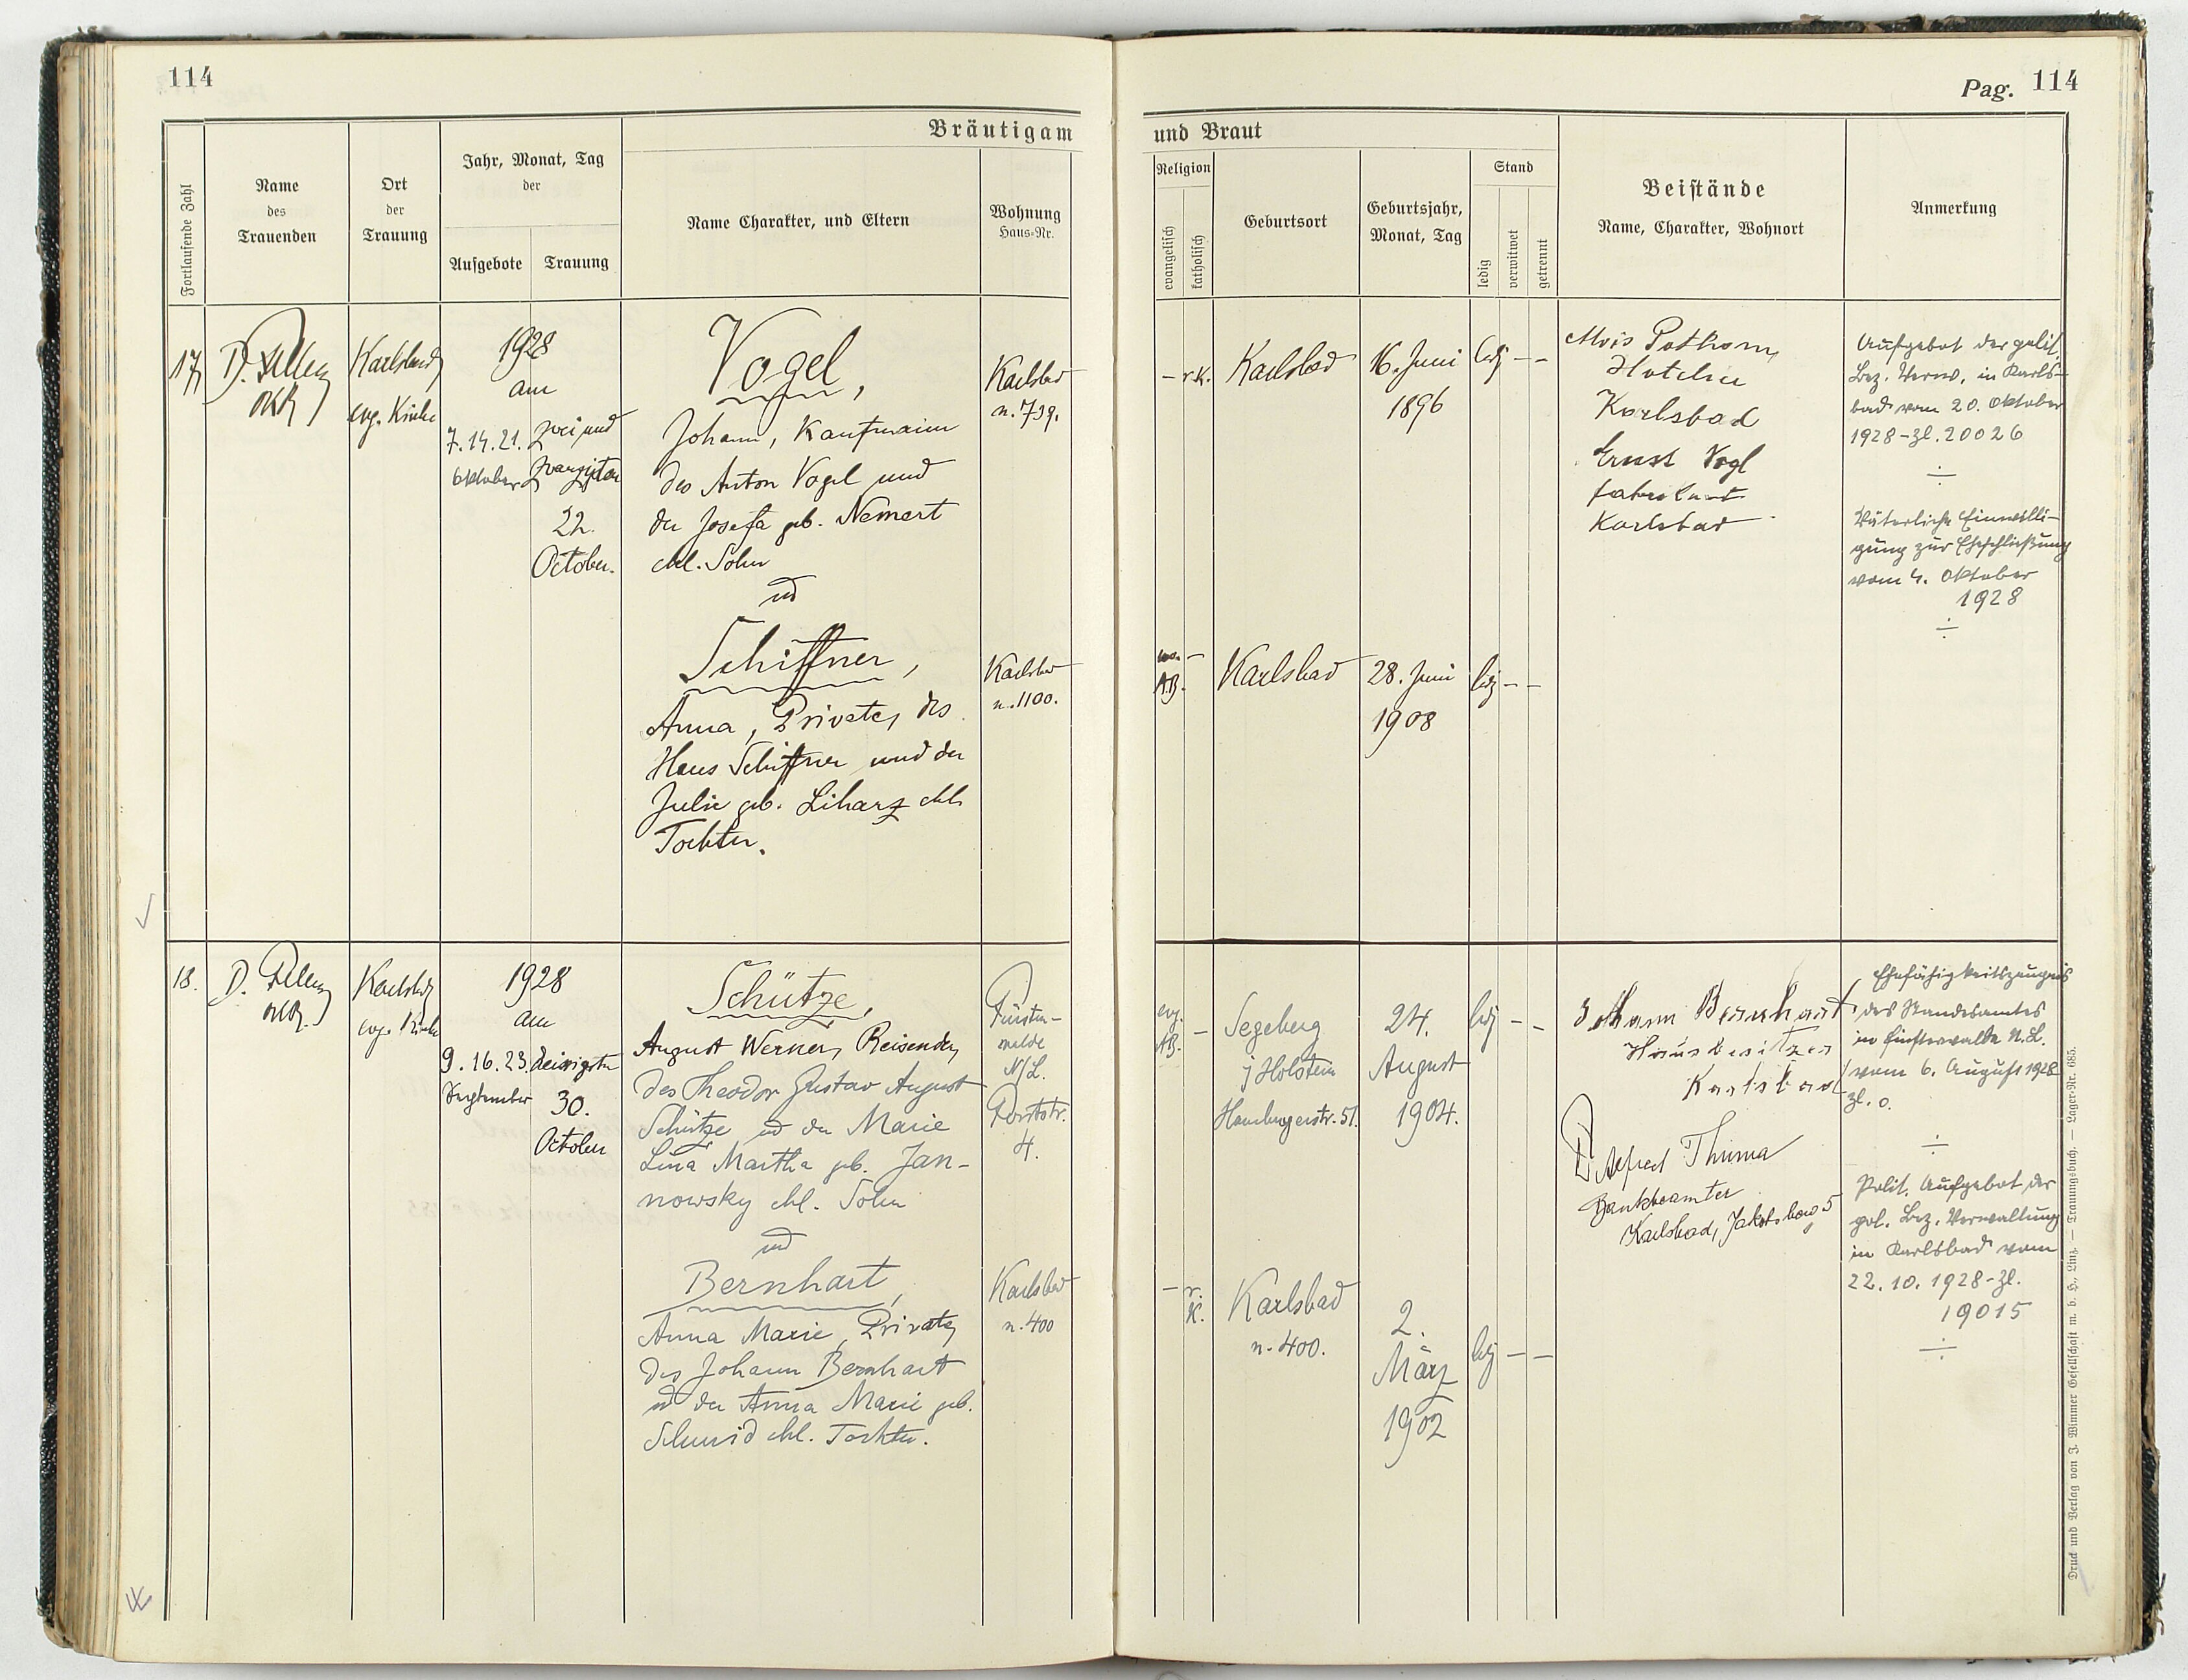 114
Pag. 114
Bräutigam
und Braut
Fortlaufende Zahl
Name
des
Trauenden
Ort
der
Trauung
Jahr, Monat, Tag
der
Aufgebote
Trauung
Name Charakter, und Eltern
Wohnung
Haus-Nr.
Religion
evangelisch
katholisch
Geburtsort
Geburtsjahr,
Monat, Tag
Stand
ledig
verwitwet
getrennt
Beistände
Name, Charakter, Wohnort
Anmerkung
17
Karlsbad
evg. Kirche
1928
am
7. 14. 21.
Oktober
zwei und
zwanzigsten
22.
October.
Vogel,
Johann, Kaufmann
des Anton Vogel und
der Josefa geb. Nemert
ehl. Sohn
und
Schiffner,
Anna, Private, des
Hans Schiffner und der
Julie geb. Liharz ehl.
Tochter.
Karlsbad
n. 739.
Karlsbad
n. 1100.
– r.k.
Karlsbad
16. Juni
1896
ledg – –
–
A.B.
Karlsbad
28. Juni
1908
ledg – –
Alois
Hotelier
Karlsbad
Ernst Vogl
Fabrikant
Karlsbad
Aufgebot der polit.
Bez. Verw. in Karls-
bad vom 20. Oktober
1928 – Zl. 20026
÷
Väterliche Einwilli-
gung zur Eheschließung
vom 4. Oktober
1928
÷
18.
Karlsbad
evg. Kirche
1928
am
9. 16. 23.
September
dreißigsten
30.
October
Schütze,
August Werner, Reisender,
des Theodor Gustav August
Schütze und der Marie
Lina Martha geb. Jan-
nowsky ehl. Sohn
und
Bernhart,
Anna Marie, Private,
des Johann Bernhart
und der Anna Marie geb.
Schmid ehl. Tochter.
N/L.
4.
Karlsbad
n. 400
evg.
AB. –
Segeberg
i Holstein
Hamburgerstr. 51.
24.
August
1904.
ledg – –
– r.
K.
Karlsbad
n. 400.
2.
März
1902
ledg – –
Johann Bernhart
Hausbesitzer
Karlsbad
Alfred Thuma
Bankbeamter
Karlsbad, 5
Ehefähigkeitszeugnis
des Standesamtes
in Finsterwalde N.L.
vom 6. August 1928
Zl. 0.
÷
Polit. Aufgebot der
pol. Bez. Verwaltung
in Karlsbad vom
22. 10. 1928 – Zl.
19015
÷
Druck und Verlag von J. Wimmer Gesellschaft m. b. H., Linz. — Trauungsbuch. — Lager-Nr. 685.